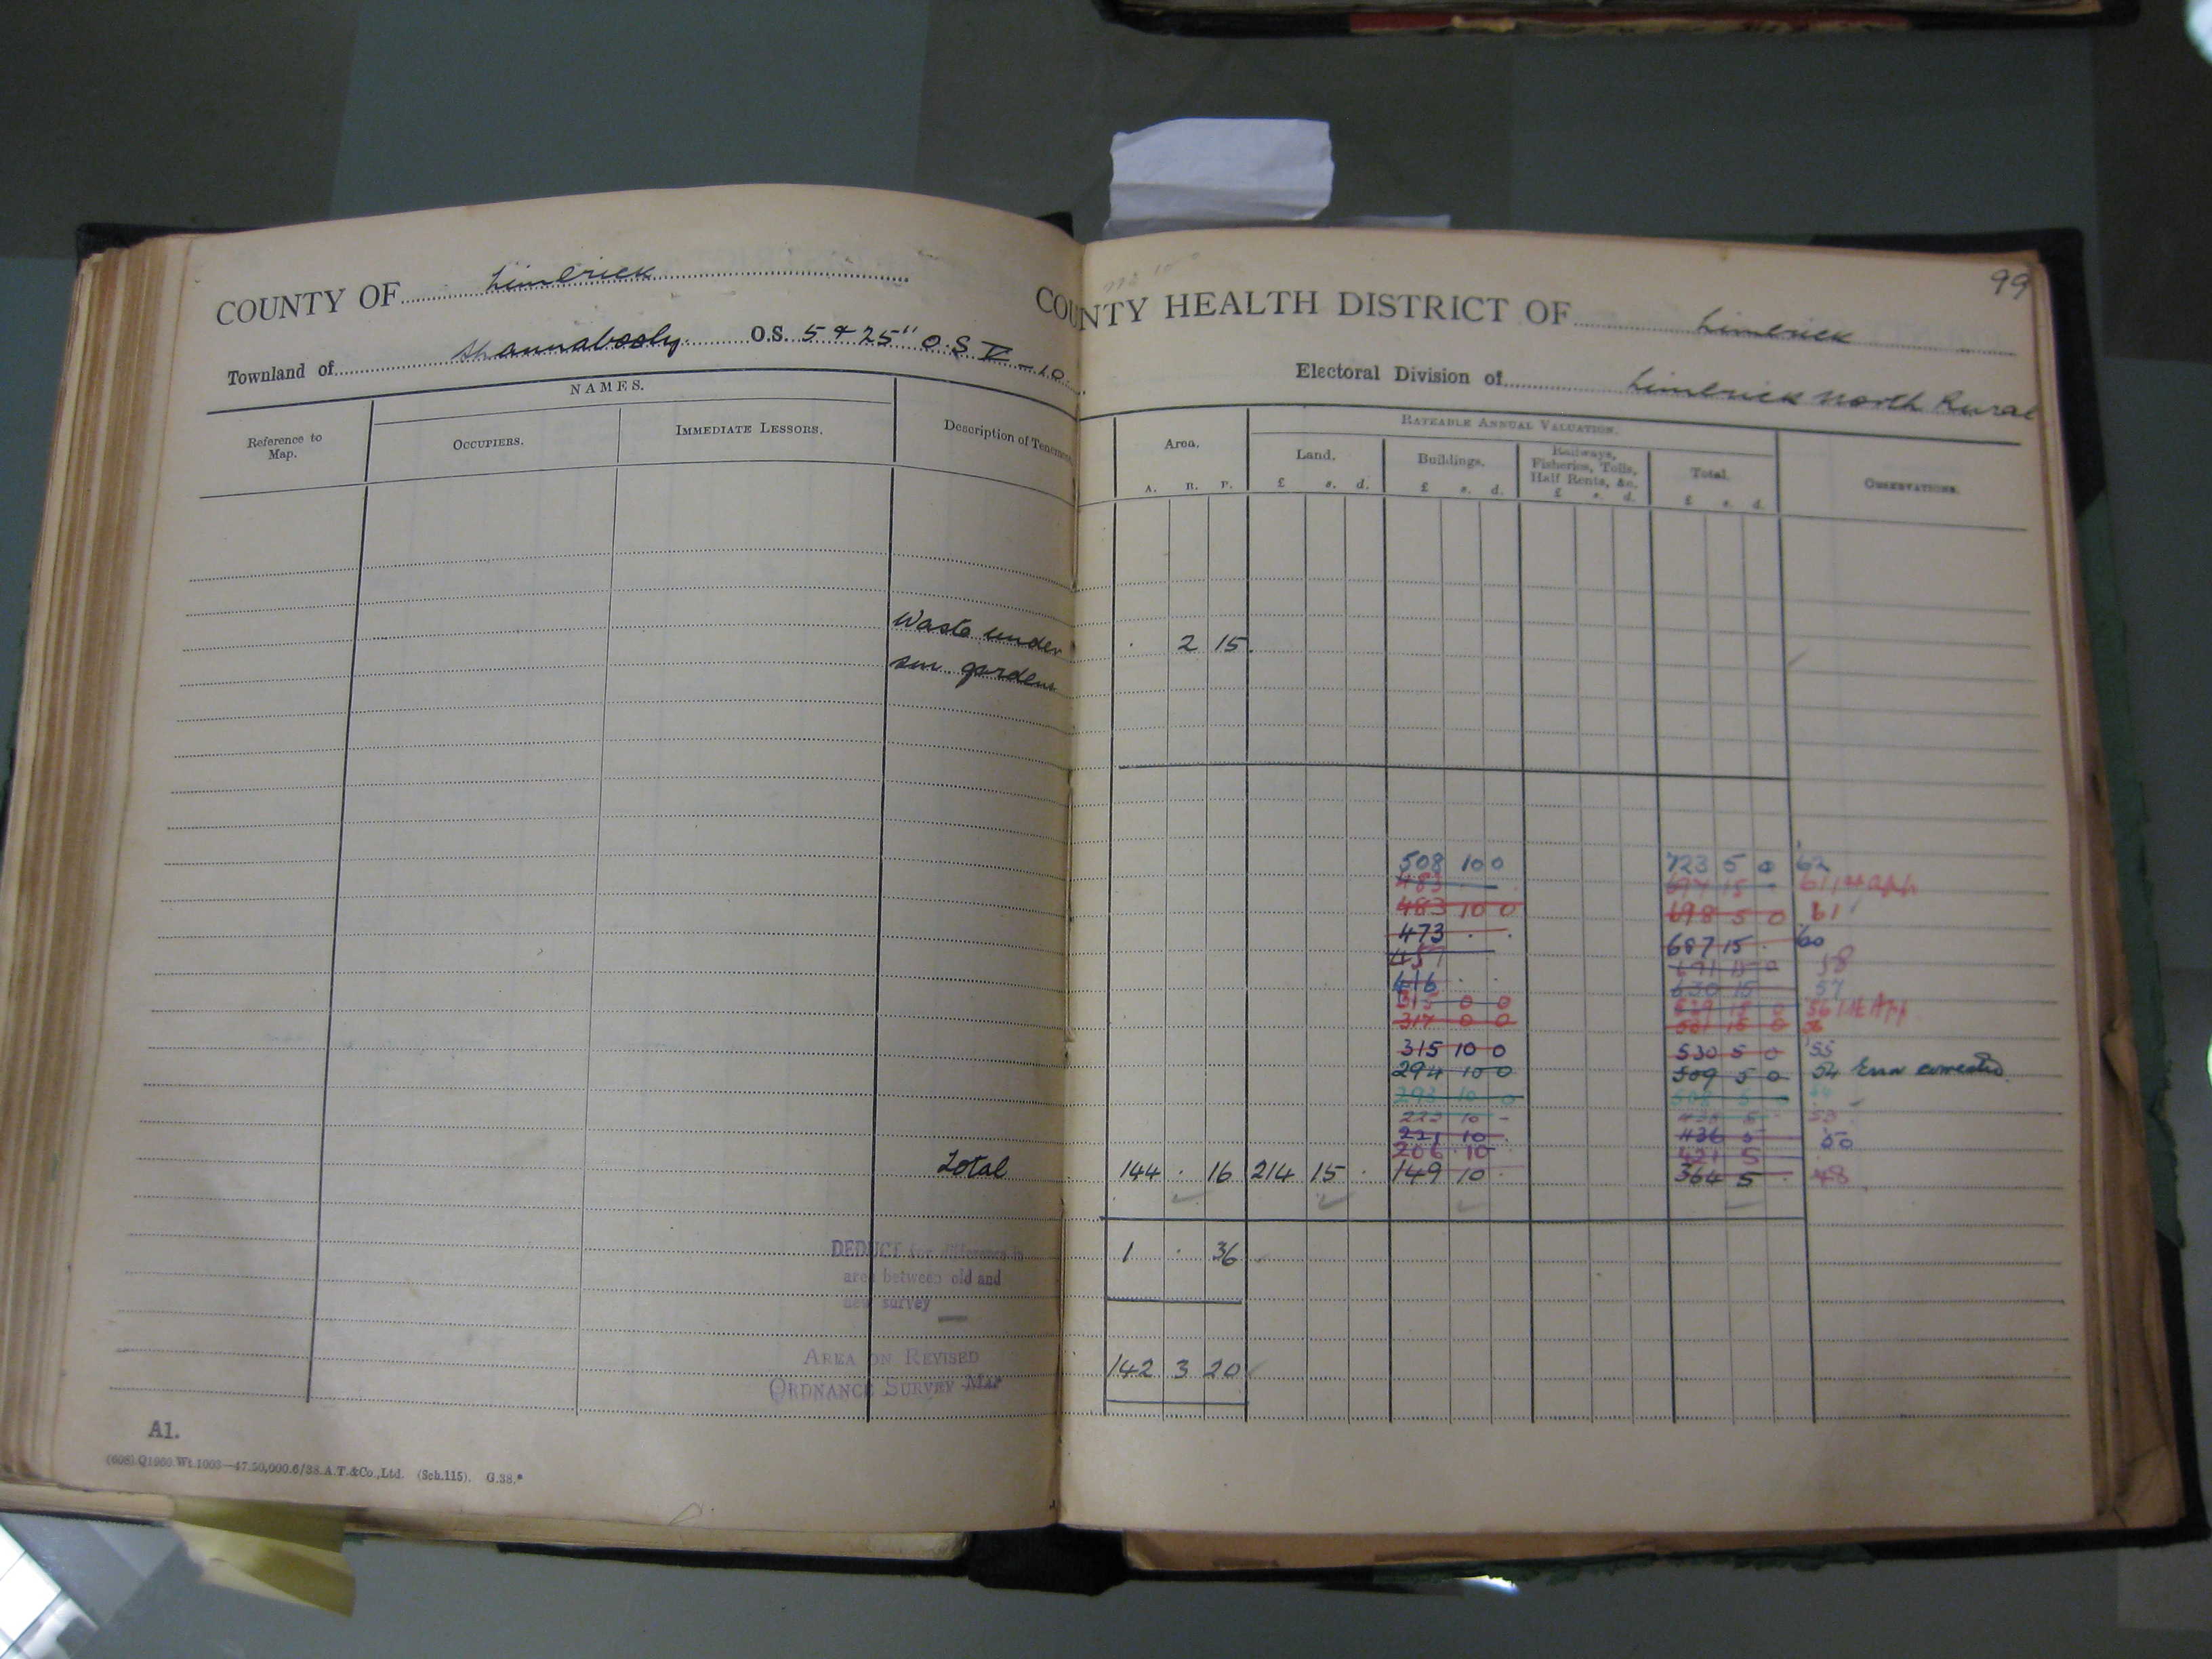 99
COUNTY OF Limerick
COUNTY HEALTH DISTRICT OF Limerick
Townland of Shannabooly. O.S. 5 & 25" O.S V - 10.
Electoral Division of Limerick North Rural
NAMES.
Reference to Map.
OCCUPIERS.
IMMEDIATE LESSORS.
Description of Tenement
Area.
A. R. P.
RATEABLE ANNUAL VALUATION.
Land.
£ s. d.
Buildings.
£ s. d.
Railways, Fisheries, Tolls, Half Rents, &c.
£ s. d.
Total.
£ s. d.
OBSERVATIONS.
Waste under . 2 15.
sm. gardens
508 10 0 723 5 0 '62
483 . . 697 15 - 61 1st App
483 10 0 698 5 0 61
473 . . 687 15 . '60
457 671 15 0 58
416 . . 630 15 57
315 0 0 529 15 0 56 1st App.
317 0 0 531 15 0 56
315 10 0 530 5 0 '55
294 10 0 509 5 0 54 Error corrected.
293 10 0 508 5 0 54
222 10 -
221 10 . 436 5 50
206 10 421 5
Total 144 . 16 214 15 . 149 10 . 364 5 . 48
DEDUCT for difference in 1 . 36
area between old and
new survey
AREA ON REVISED 142 3 20
ORDNANCE SURVEY MAP
A1.
(608).Q1060.Wt.1003—47.50,000.6/38.A.T.&Co.,Ltd. (Sch.115). G.38.*